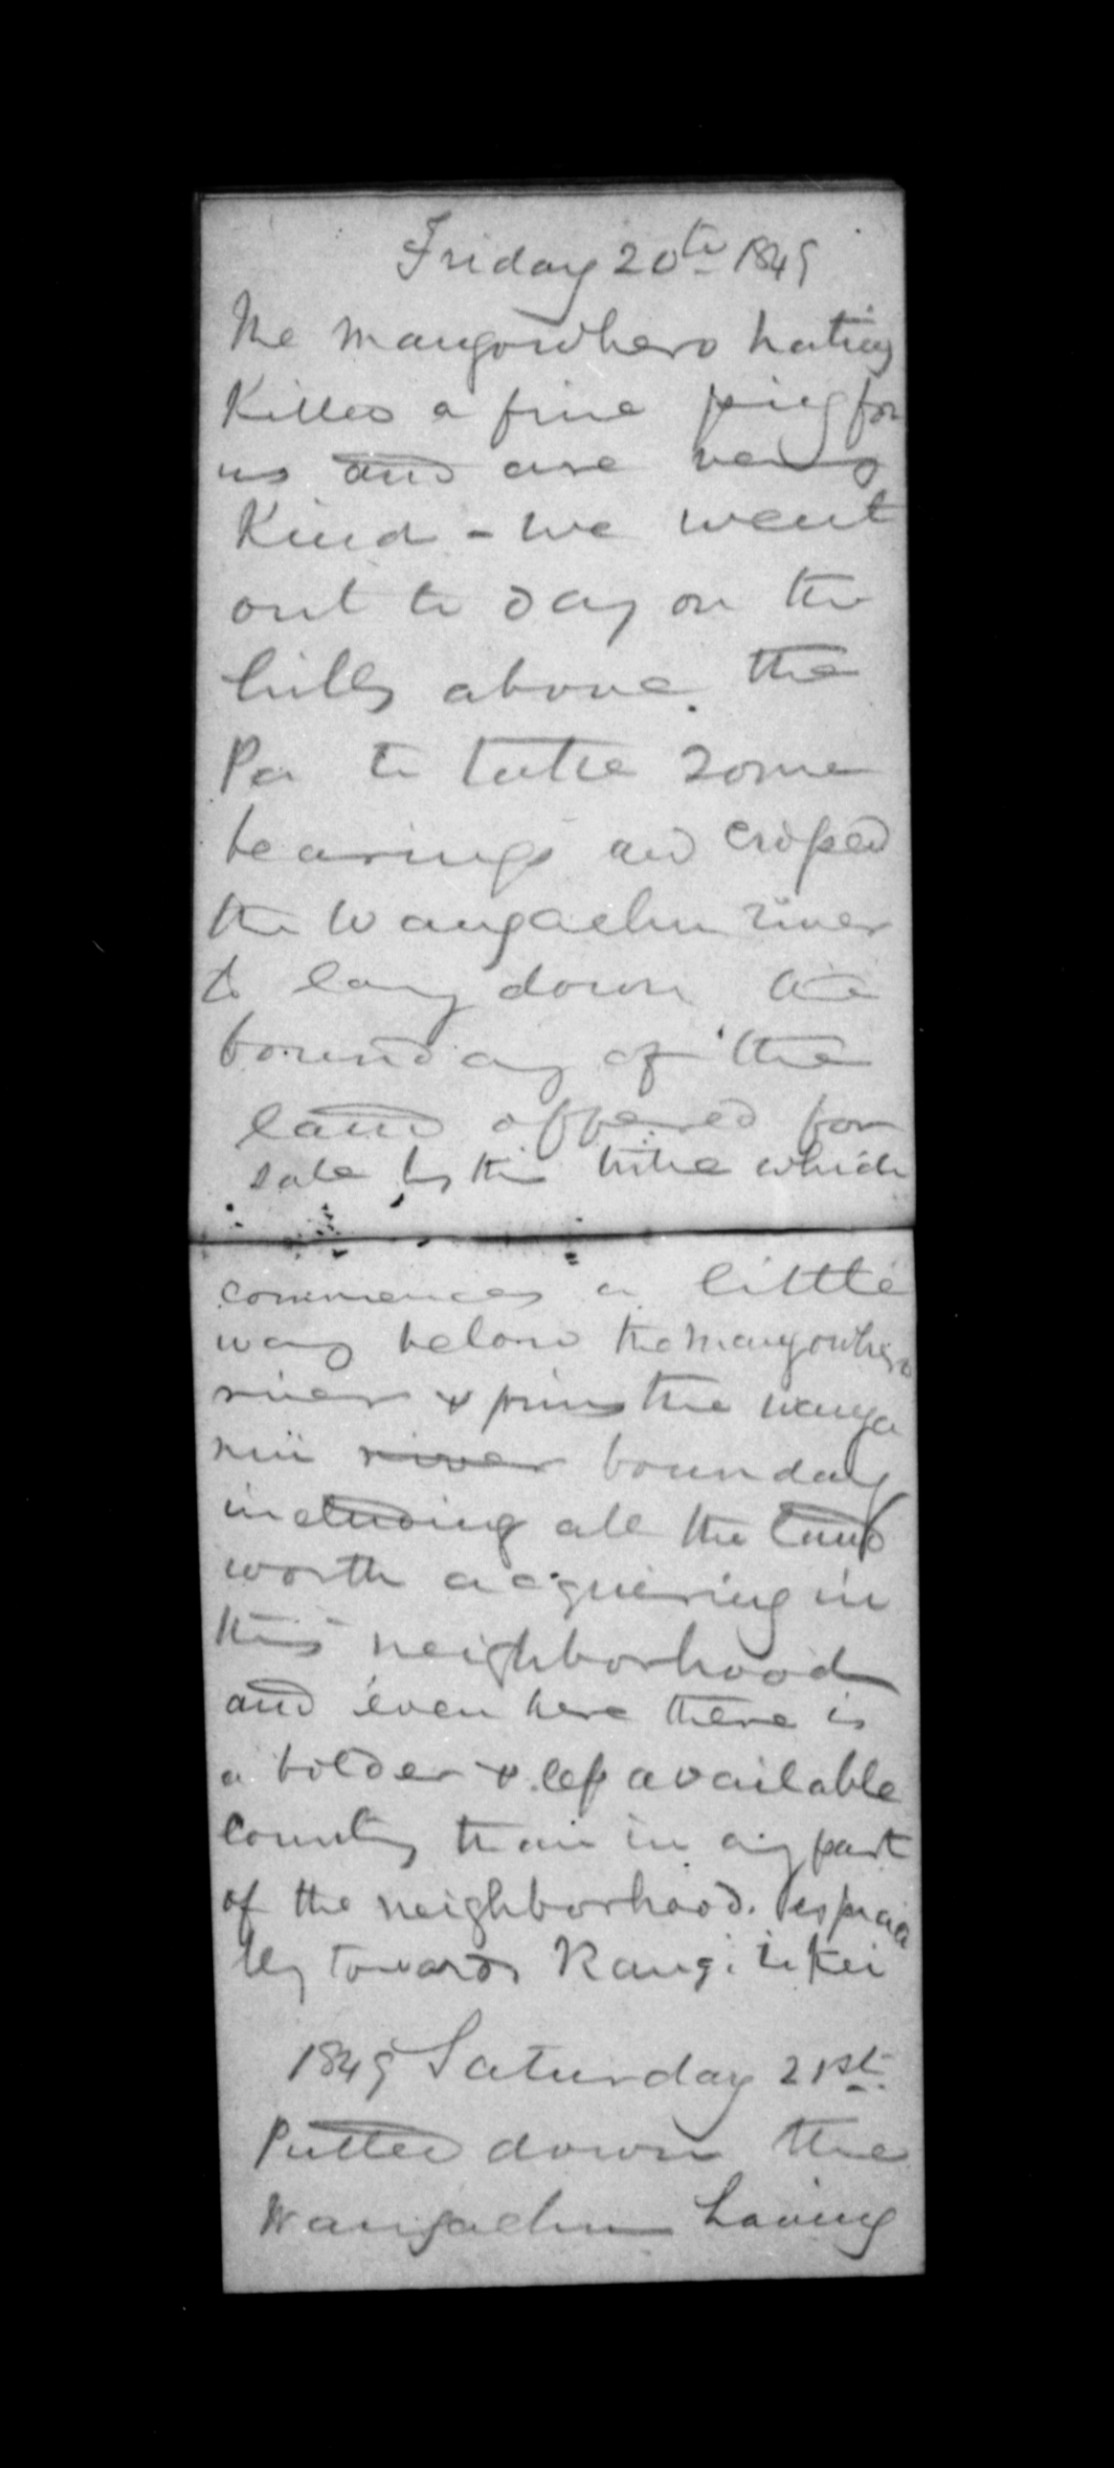 Friday 20th 1849
The Mangowhero natives
Killed a fine pig for
us and are very
Kind - We went
out to day on the
hills above. the
Pa to take some
bearings and crossed
the Wangaehu river
to lay down the
boundary of the
land offered for
sale by this tribe which
commences a little
way below the Mangowhero
river & joins the wanga
nui river boundary
including all the land
worth acquiering in
this neighborhood
and even here there is
a bolder & less available
Country than in any part
of the neighborhood. especia
lly towards Rangitikei
1849 Saturday 21st.
Pulled down the
Wangaehu having